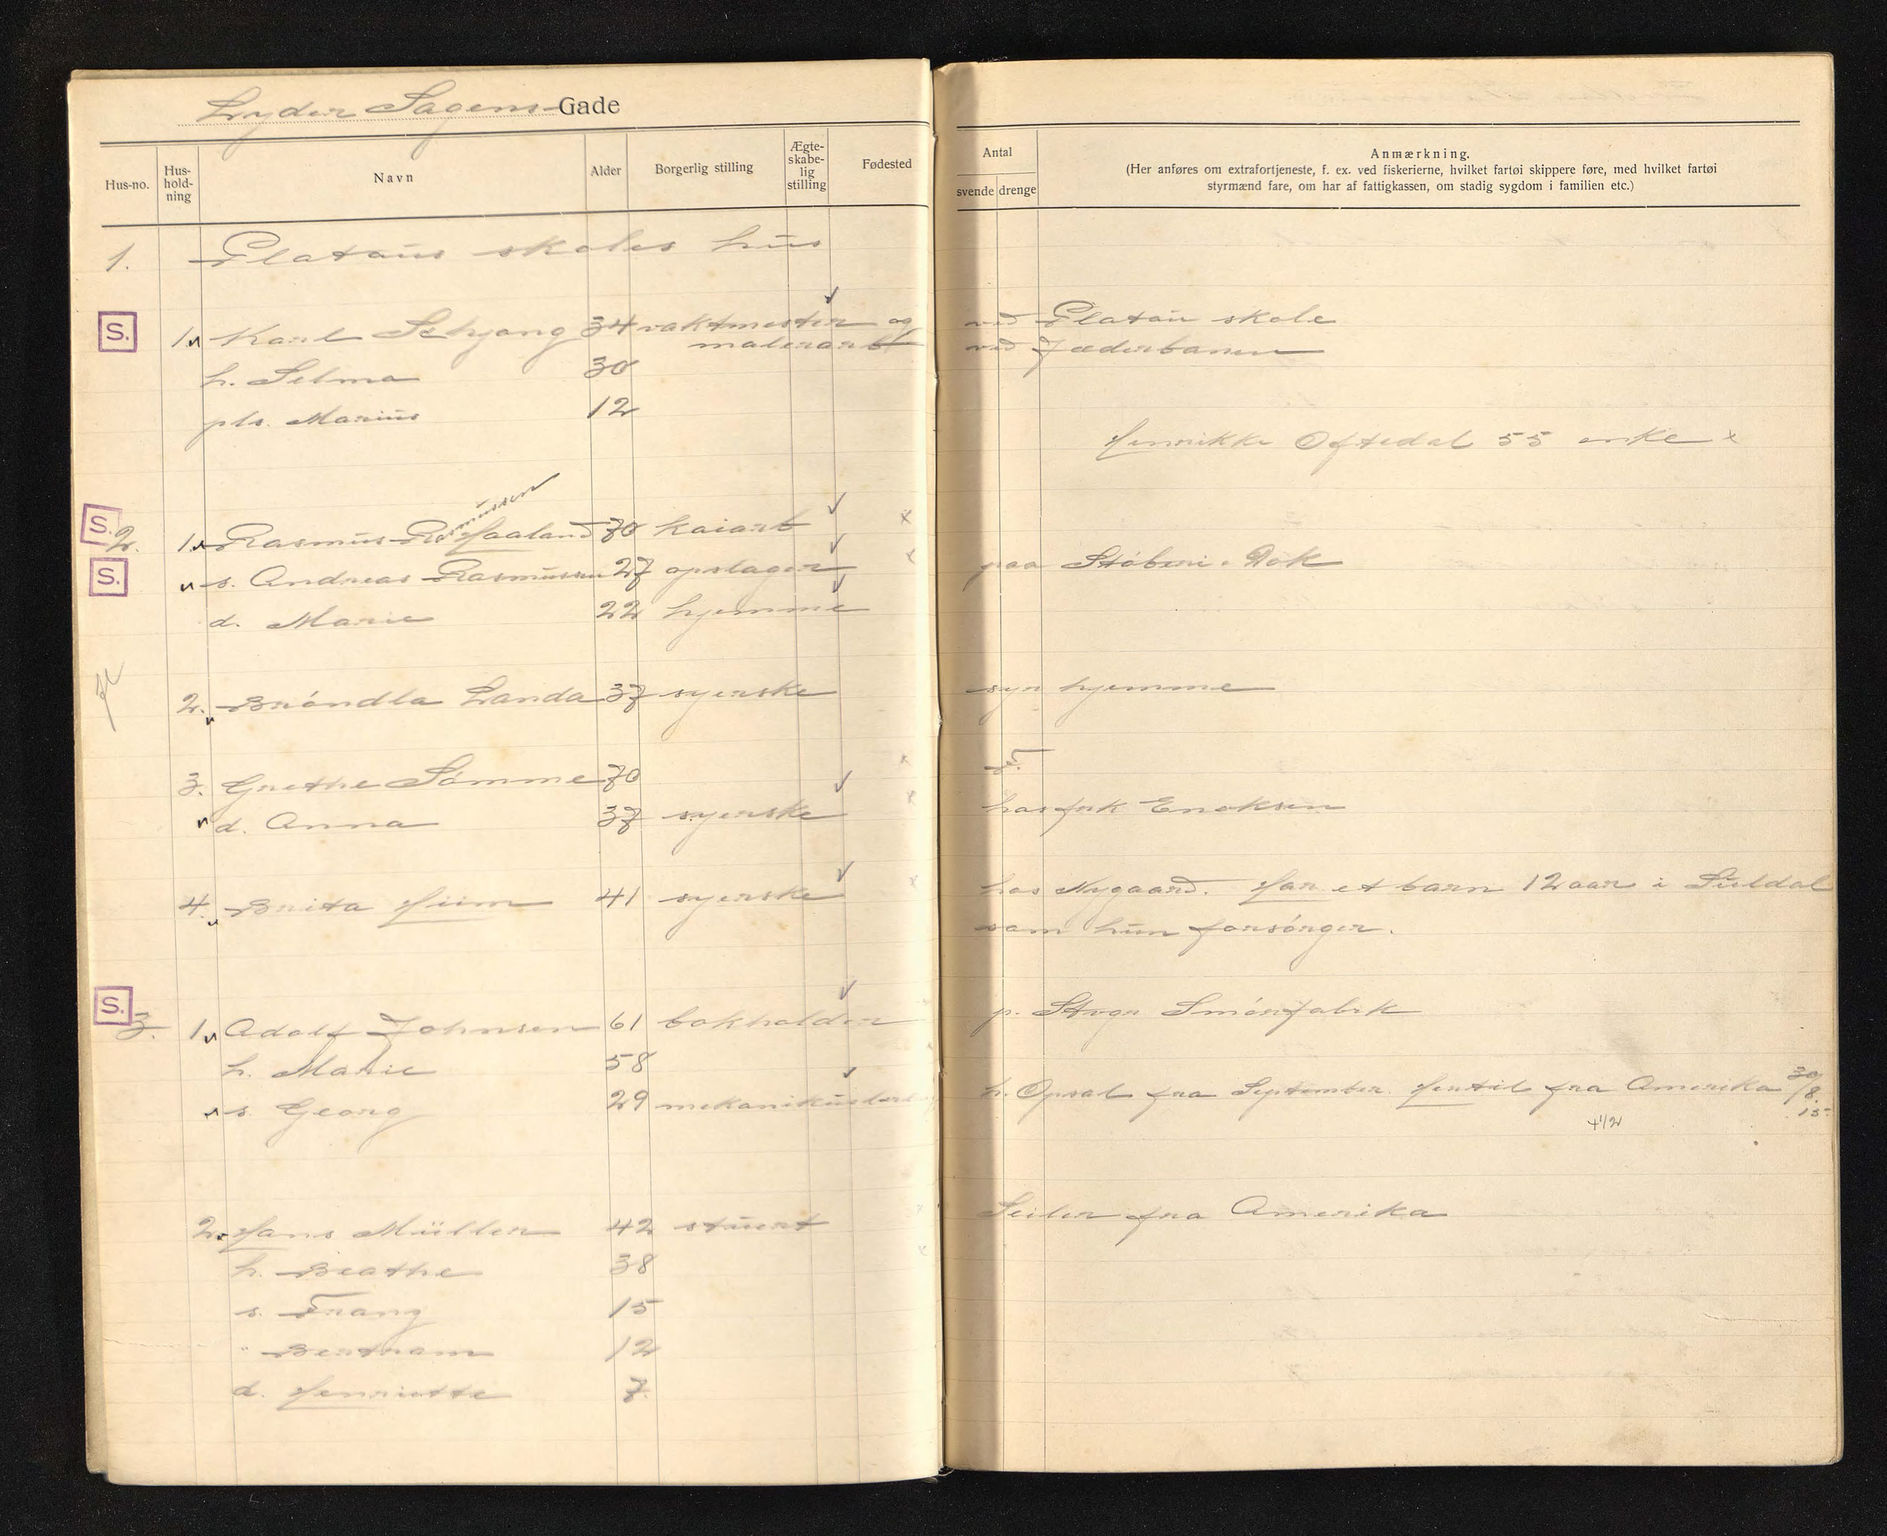 Lyder Sagens Gade
Hus-no. Hus-hold-ning Navn Alder Borgerlig stilling Ægte-skabe-lig stilling Fødested
Antal svende drenge
Anmærkning.
(Her anføres om extrafortjeneste, f. ex. ved fiskerierne, hvilket fartøi skippere føre, med hvilket fartøi
styrmænd fare, om har af fattigkassen, om stadig sygdom i familien etc.)
1. Platous skoles hus
S. 1. Karl 34 vaktmester og ved Platou skole
malerarb ved Jæderbanen
h. Selma 30
pls. Marius 12
Henrikke Oftedal 55 enke x
S. 2. 1. Rasmus Rasmussen Haaland 70 kaiarb x
S. s. Andreas Rasmussen 27 opslager x paa Støberi & Dok
d. Marie 22 hjemme
2. Brøndla Landa 37 syerske syr hjemme
3. Grethe Sømme 70 x F.
d. Anna 37 syerske x hos frk Enoksen
4. Brita Hiim 41 syerske x hos Nygaard. Har et barn 12 aar i Suldal
som hun forsørger.
S. 3. 1. Adolf Johnsen 61 bokholder p. Stvgr Smørfabrk
h. Marie 58
s. Georg 29 h. Opsal fra September. Hertil fra Amerika 30/8. 15
4 1/2
2. Hans Müller 42 stuert Seiler fra Amerika
h. Beathe 38 x
s. Frang 15
" Bertram 12
d. Henriette 7.